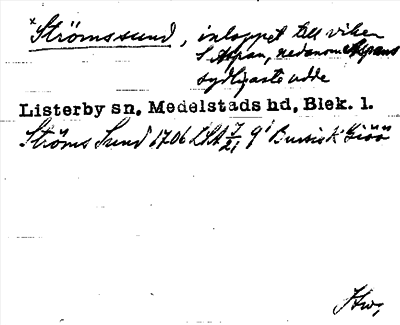 *Strömssund, inloppet till viken
S Aspan, nedanom Aspans
sydligaste udde
Listerby sn, Medelstads hd, Blek. l.
Ströms Sund 1706 LSA 7/21 9
Hwg